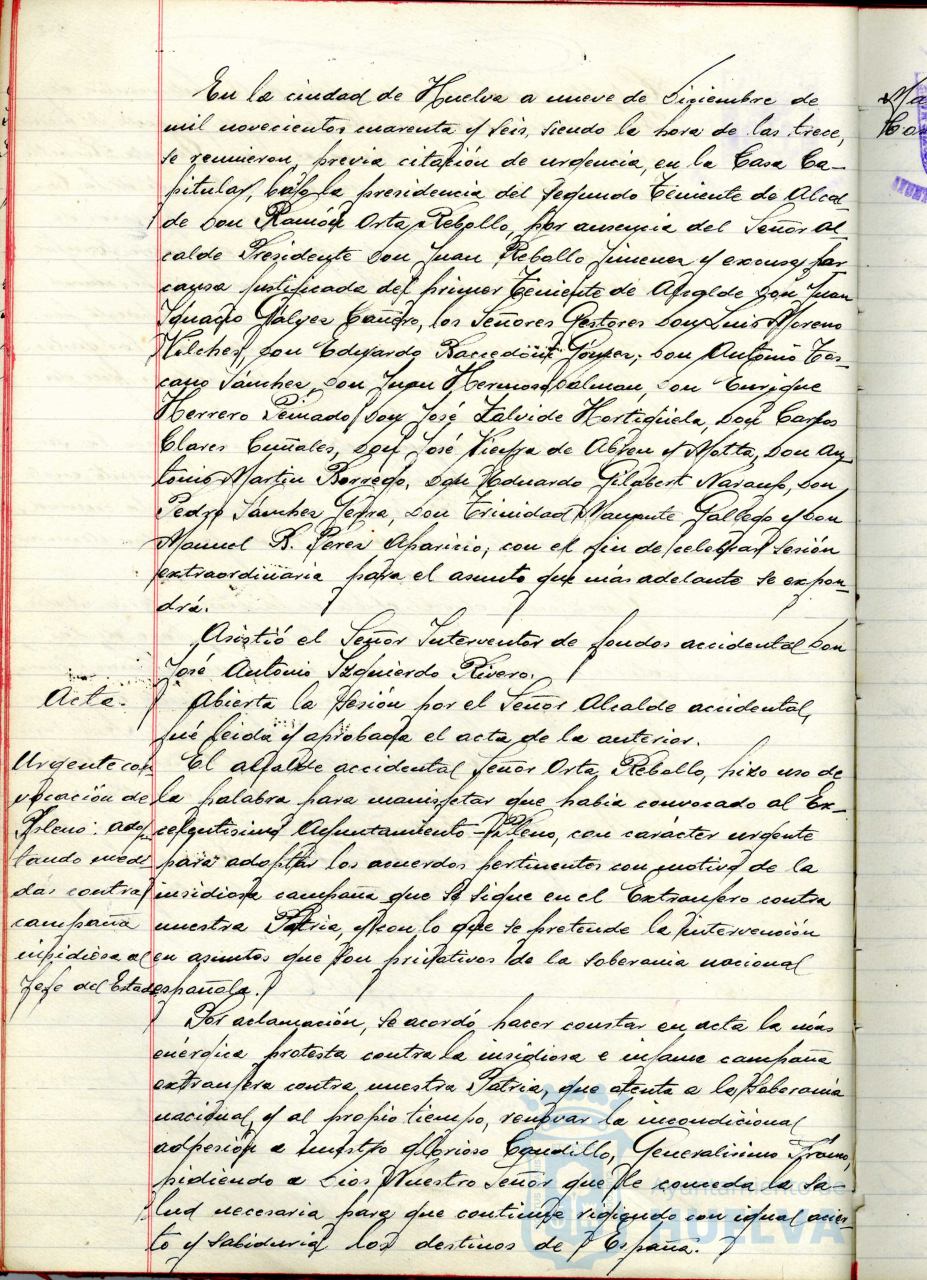 En la ciudad de Huelva a nueve de Diciembre de
mil novecientos cuarenta y seis, siendo la hora de las trece,
se reunieron, previa citación de urgencia, en la Casa Ca-
pitular, bajo la presidencia del Segundo Teniente de Alcal-
de Don Ramón Orta Rebollo, por ausencia del Señor Al-
calde Presidente Don Juan Rebollo Jimenez y excusa por
causa justificada del primer Teniente de Alcalde Don Juan
Ignacio Gálvez Cañero, los Señores Gestores Don Luis Moreno
Vilches, Don Eduardo Gómez, Don Antonio Tos-
cano Sánchez, Don Juan Hermoso Dalmán, Don Enrique
Herrero Peinado, Don José Zalvide Hortigüela, Don Carlos
Clares Cuñales, Don José Vieyra de Abreu y Motta, Don An-
tonio Martin Borrego, Don Eduardo Gilabert Naranjo, Don
Pedro Sánchez Don Trinidad Gallego y Don
Manuel B. Pérez Aparicio, con el fin de celebrar sesión
extraordinaria para el asunto que más adelante se expon-
drá.
Asistió el Señor Interventor de fondos accidental Don
José Antonio Izquierdo Rivero.
Acta.
Abierta la Sesión por el Señor Alcalde accidental,
fué leida y aprobada el acta de la anterior.
Urgente con-
vocación de
Pleno: adop-
tando medi-
das contra
campaña
insidiosa al
Jefe del Estado
El alcalde accidental Señor Orta Rebollo, hizo uso de
la palabra para manifestar que había convocado al Ex-
celentisimo Ayuntamiento-Pleno, con carácter urgente
para adoptar los acuerdos pertinentes con motivo de la
insidiosa campaña que se sigue en el Extranjero contra
nuestra Patria, y con lo que se pretende la intervención
en asuntos que son privativos de la soberania nacional
española.
Por aclamación, se acordó hacer constar en acta la más
enérgica protesta contra la insidiosa e infame campaña
extranjera contra nuestra Patria, que atenta a la Soberania
nacional, y al propio tiempo, renovar la incondicional
adhesión a nuestro glorioso Caudillo, Generalisimo Franco,
pidiendo a Dios Nuestro Señor que le conceda la sa-
lud necesaria para que continue rigiendo con igual acier-
to y sabiduria los destinos de España.
Ayuntamiento de
HUELVA